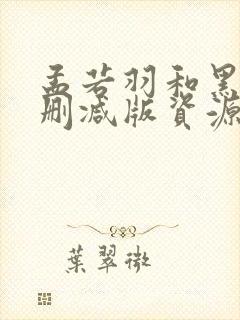 孟若羽和黑
删减版資源
葉翠微